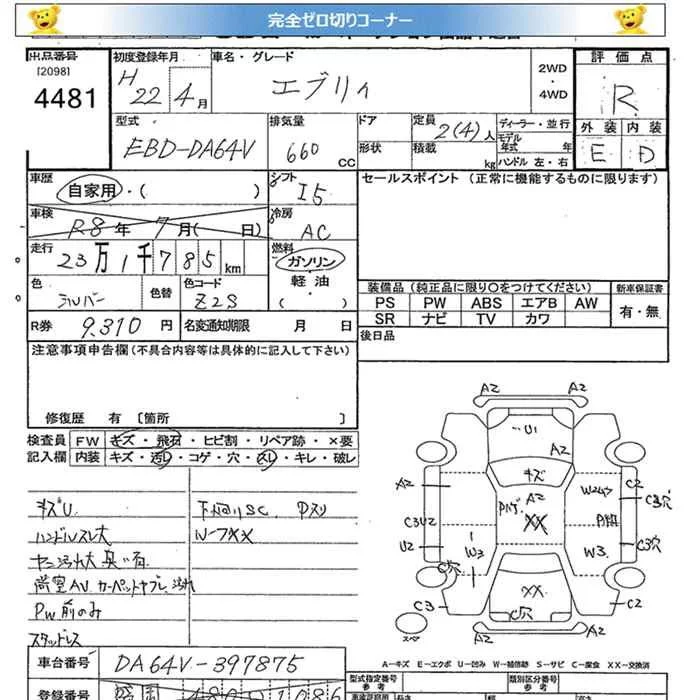 完全ゼロ切りコーナー
出品番号
[2098]
4481
初度登録年月
H 22年 4月
車名・グレード
エブリィ
2WD
・
4WD
評価点
R
外装 内装
E D
型式
EBD-DA64V
排気量
660 CC
ドア
形状
定員 2(4)人
積載 kg
ディーラー・並行
モデル
年式 年
ハンドル 左・右
車歴
自家用・( )
シフト
I5
セールスポイント (正常に機能するものに限ります)
車検
R8年 7月( 日)
冷房
AC
走行
23万1千785km
燃料
ガソリン
軽油
( )
色
シルバー
色替
色コード
Z2S
装備品(純正品に限り○をつけてください)
PS PW ABS エアB AW
SR ナビ TV カワ
新車保証書
有・無
R券 9.310 円
名変通知期限 月 日
後日品
注意事項申告欄(不具合内容等は具体的に記入して下さい)
修復歴 有 [箇所 ]
検査員
記入欄
FW キズ・飛石・ヒビ割・リペア跡・×要
内装 キズ・汚レ・コゲ・穴・スレ・キレ・破レ
キズU
ハンドルスレ大
ヤニ汚れ大 臭い有
PW前のみ
スタッドレス
下廻りSC
A2 A2
U1
A2
キズ
A2
A2
XX
W2
C2
C3穴
C3U2
U2
W3
W3
C3穴
C穴
XX
C穴
C3
C2
スペ
A-キズ E-エクボ U-凹み W-補修跡 S-サビ C-腐食 XX-交換済
車台番号 DA64V-397875
登録番号
型式指定番号
参考
類別区分番号
参考